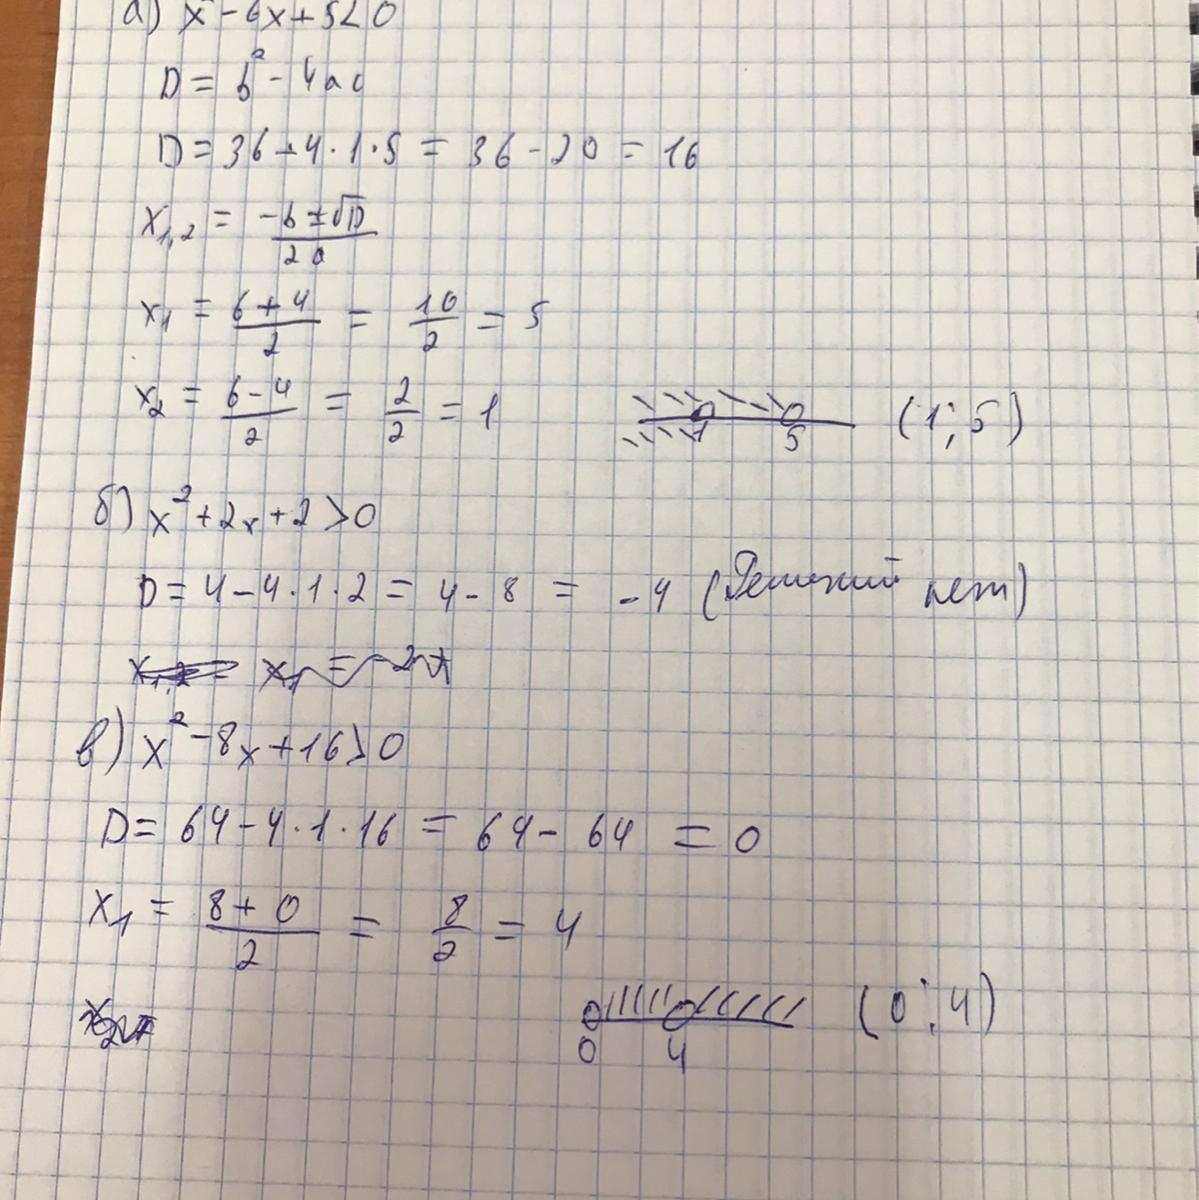 а) x² - 6x + 5 < 0
D = b² - 4ac
D = 36 - 4 · 1 · 5 = 36 - 20 = 16
x₁,₂ = (-b ± √D) / 2a
x₁ = (6 + 4) / 2 = 10 / 2 = 5
x₂ = (6 - 4) / 2 = 2 / 2 = 1
1 5 (1; 5)
б) x² + 2x + 2 > 0
D = 4 - 4 · 1 · 2 = 4 - 8 = -4 (Решений нет)
в) x² - 8x + 16 > 0
D = 64 - 4 · 1 · 16 = 64 - 64 = 0
x₁ = (8 + 0) / 2 = 8 / 2 = 4
0 4 (0; 4)